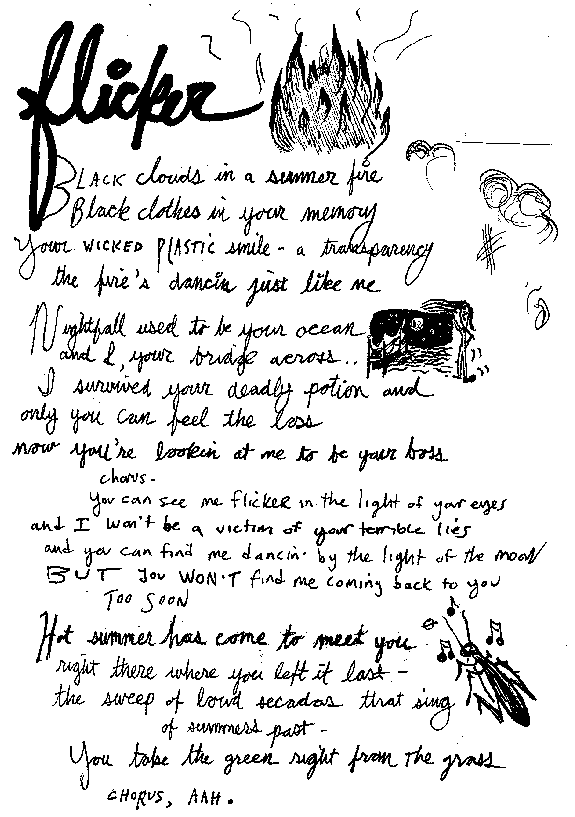 flicker
BLACK clouds in a summer fire
Black clothes in your memory
Your WICKED PLASTIC smile - a transparency
the fire's dancin just like me
Nightfall used to be your ocean
and I, your bridge across..
I survived your deadly potion and
only you can feel the loss
now you're lookin at me to be your boss
chorus-
You can see me flicker in the light of your eyes
and I won't be a victim of your terrible lies
and you can find me dancin' by the light of the moon
BUT you WON'T find me coming back to you
TOO SOON
Hot summer has come to meet you
right there where you left it last -
the sweep of loud secadas that sing
of summers past -
You take the green right from the grass
CHORUS, AAH.